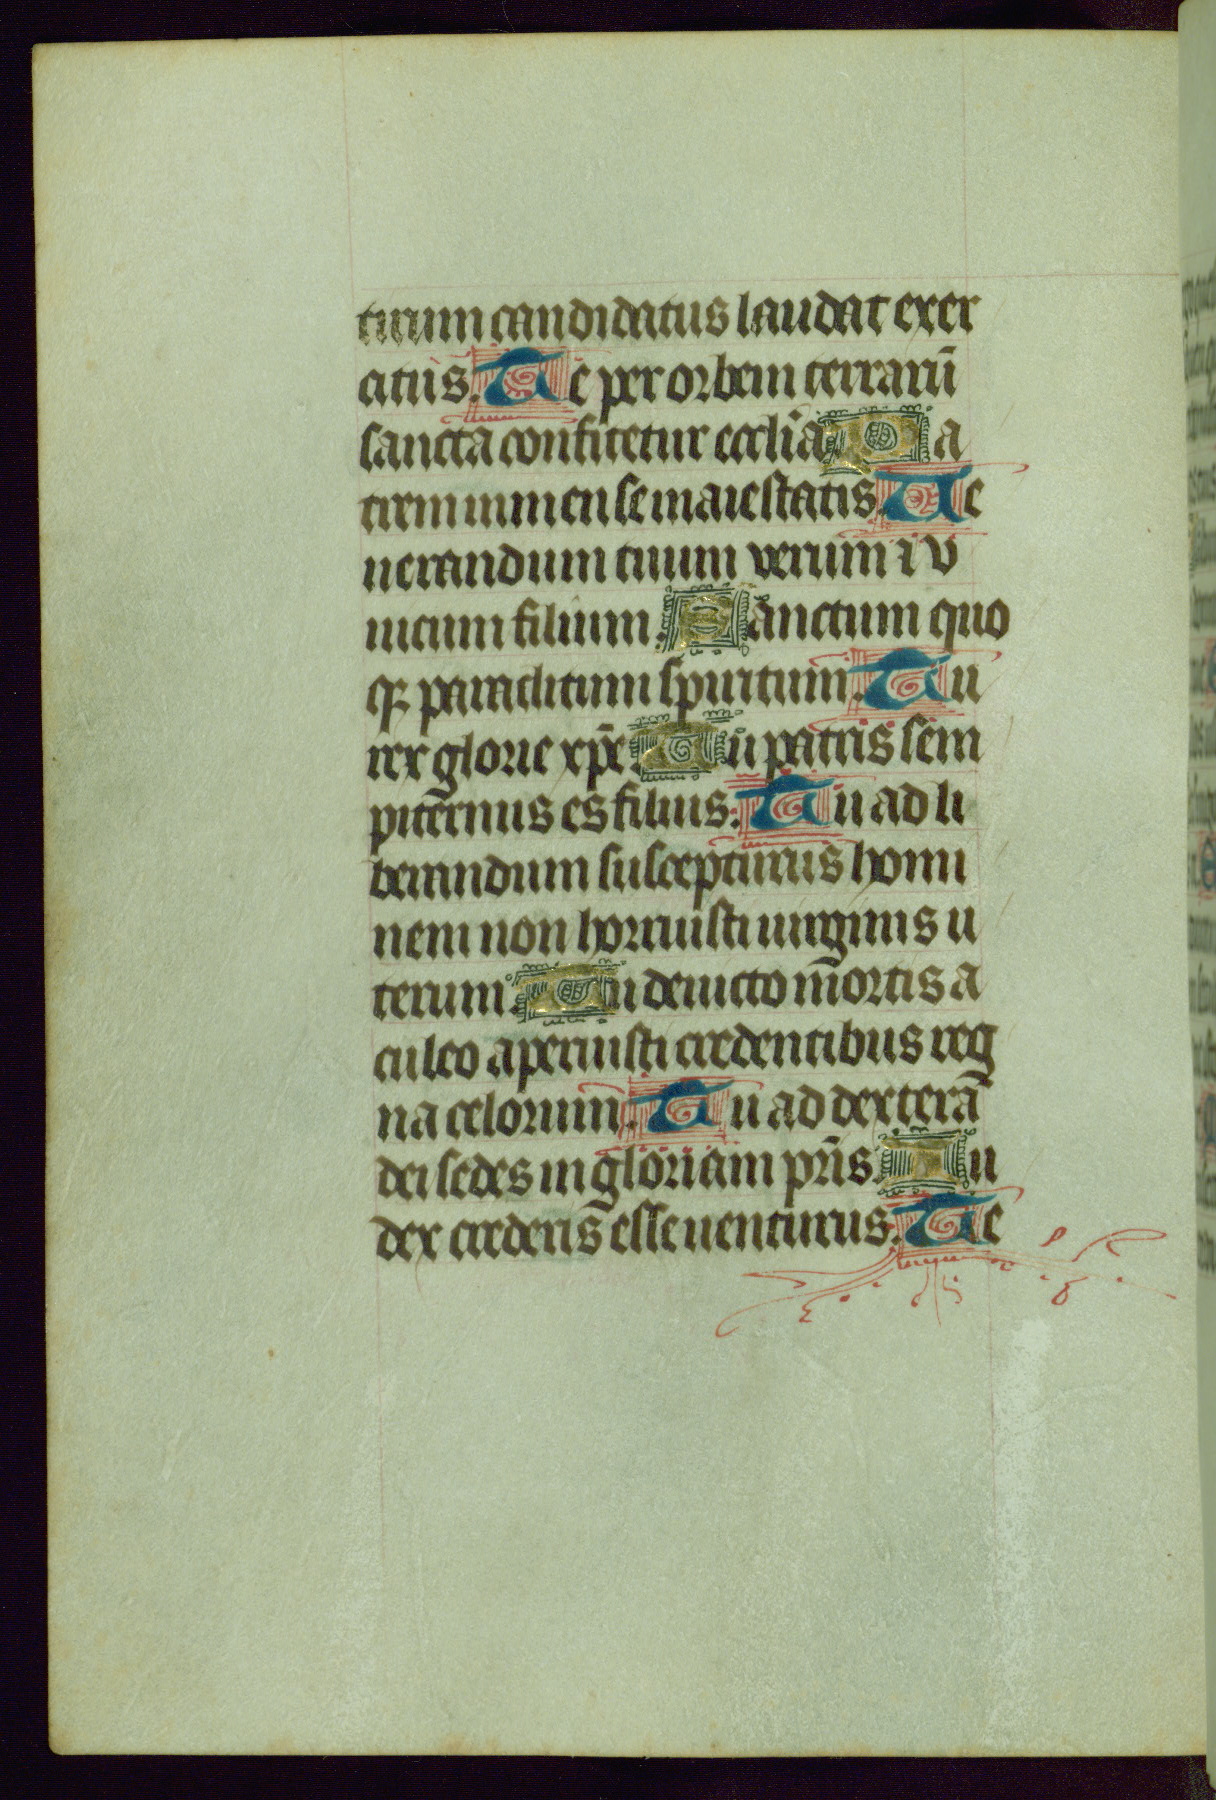 tirum candidatus laudat exer
citus. Te per orbem terrarū
sancta confitetur eccli̅a. Pa
trem immense maiestatis. Ve
nerandum tuum verum ⁊ v
nicum filium. Sanctum quo
qꝫ paraclitum spiritum. Tu
rex glorie xp̅e. Tu patris sem
piternus es filius. Tu ad li
berandum suscepturus homi
nem non horruisti uirginis u
terum. Tu deuicto mortis a
culeo aperuisti credentibus reg
na celorum. Tu ad dexterā
dei sedes in gloriam pr̅is. Iu
dex crederis esse uenturus. Te